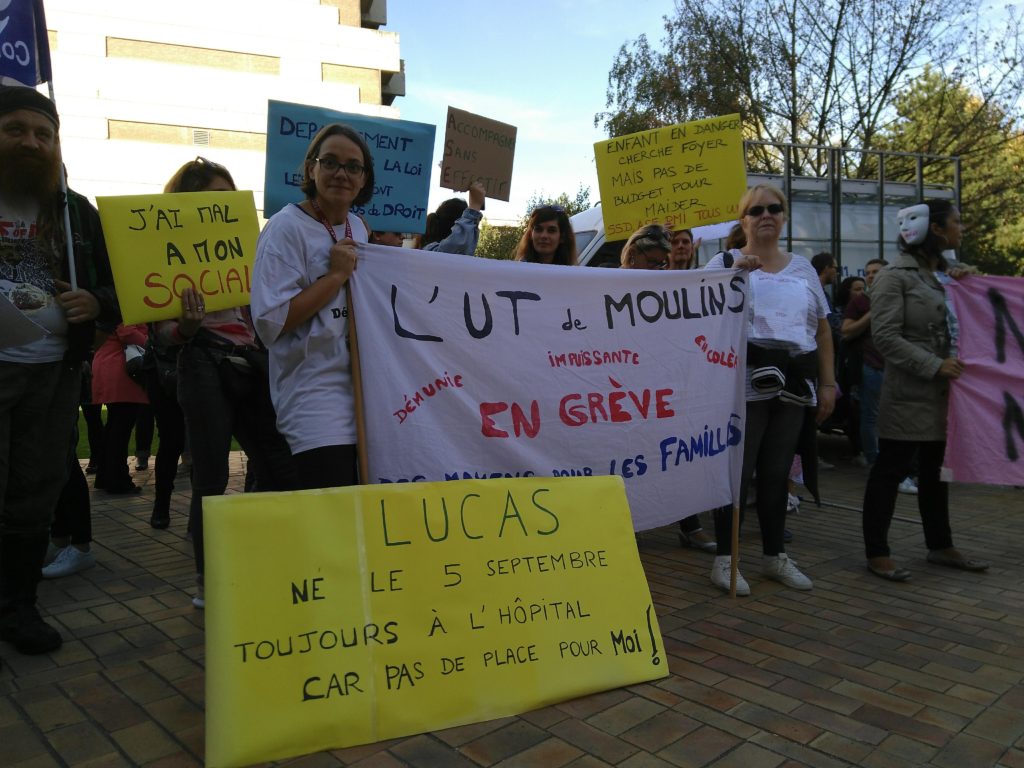 J'AI MAL
A MON
SOCIAL
DEPARTEMENT
LA LOI
LES
SONT
DE DROIT
ACCOMPAGNE
SANS
EFFECTIF
ENFANT EN DANGER
CHERCHE FOYER
MAIS PAS DE
BUDGET POUR
M'AIDER
SSD, ASE PMI TOUS
L'UT de MOULINS
DÉMUNIE
IMPUISSANTE
EN COLÈRE
EN GRÈVE
DES MOYENS POUR LES FAMILLES
LUCAS
NÉ LE 5 SEPTEMBRE
TOUJOURS À L'HÔPITAL
CAR PAS DE PLACE POUR MOI !